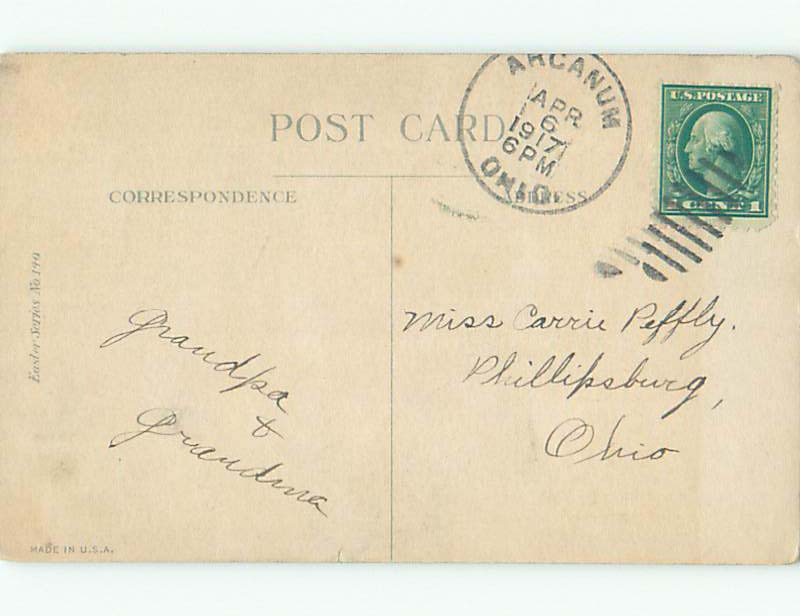 ARCANUM
APR
6
1917
6 PM
OHIO.
U.S. POSTAGE
1 CENT 1
POST CARD
CORRESPONDENCE
ADDRESS
Easter Series No 149
Grandpa
&
Grandma
Miss Carrie Peffly.
Phillipsburg,
Ohio
MADE IN U.S.A.